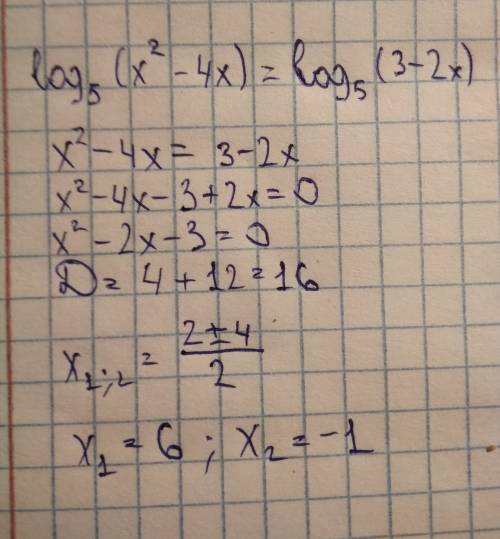 log₅(x² - 4x) = log₅(3 - 2x)
x² - 4x = 3 - 2x
x² - 4x - 3 + 2x = 0
x² - 2x - 3 = 0
D = 4 + 12 = 16
x₁;₂ = (2 ± 4)/2
x₁ = 6 ; x₂ = -1